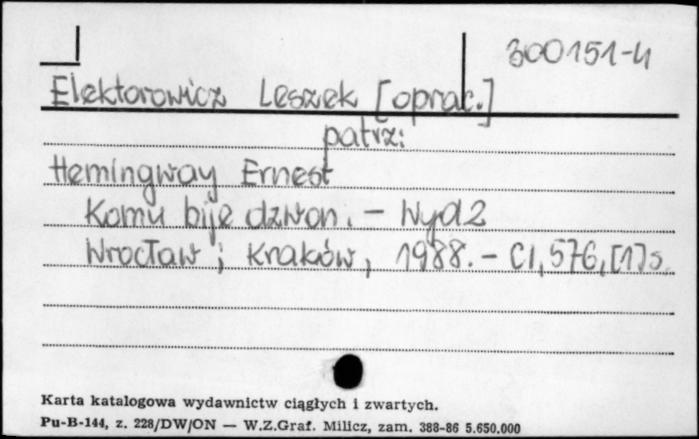 300151-4
Elektorowicz Leszek [oprac.]
patrz:
Hemingway Ernest
Komu bije dzwon. - Wyd 2
Wrocław ; Kraków, 1988. - CI, 576, [1] s.
Karta katalogowa wydawnictw ciągłych i zwartych.
Pu-B-144, z. 228/DW/ON — W.Z.Graf. Milicz, zam. 388-86 5.650.000